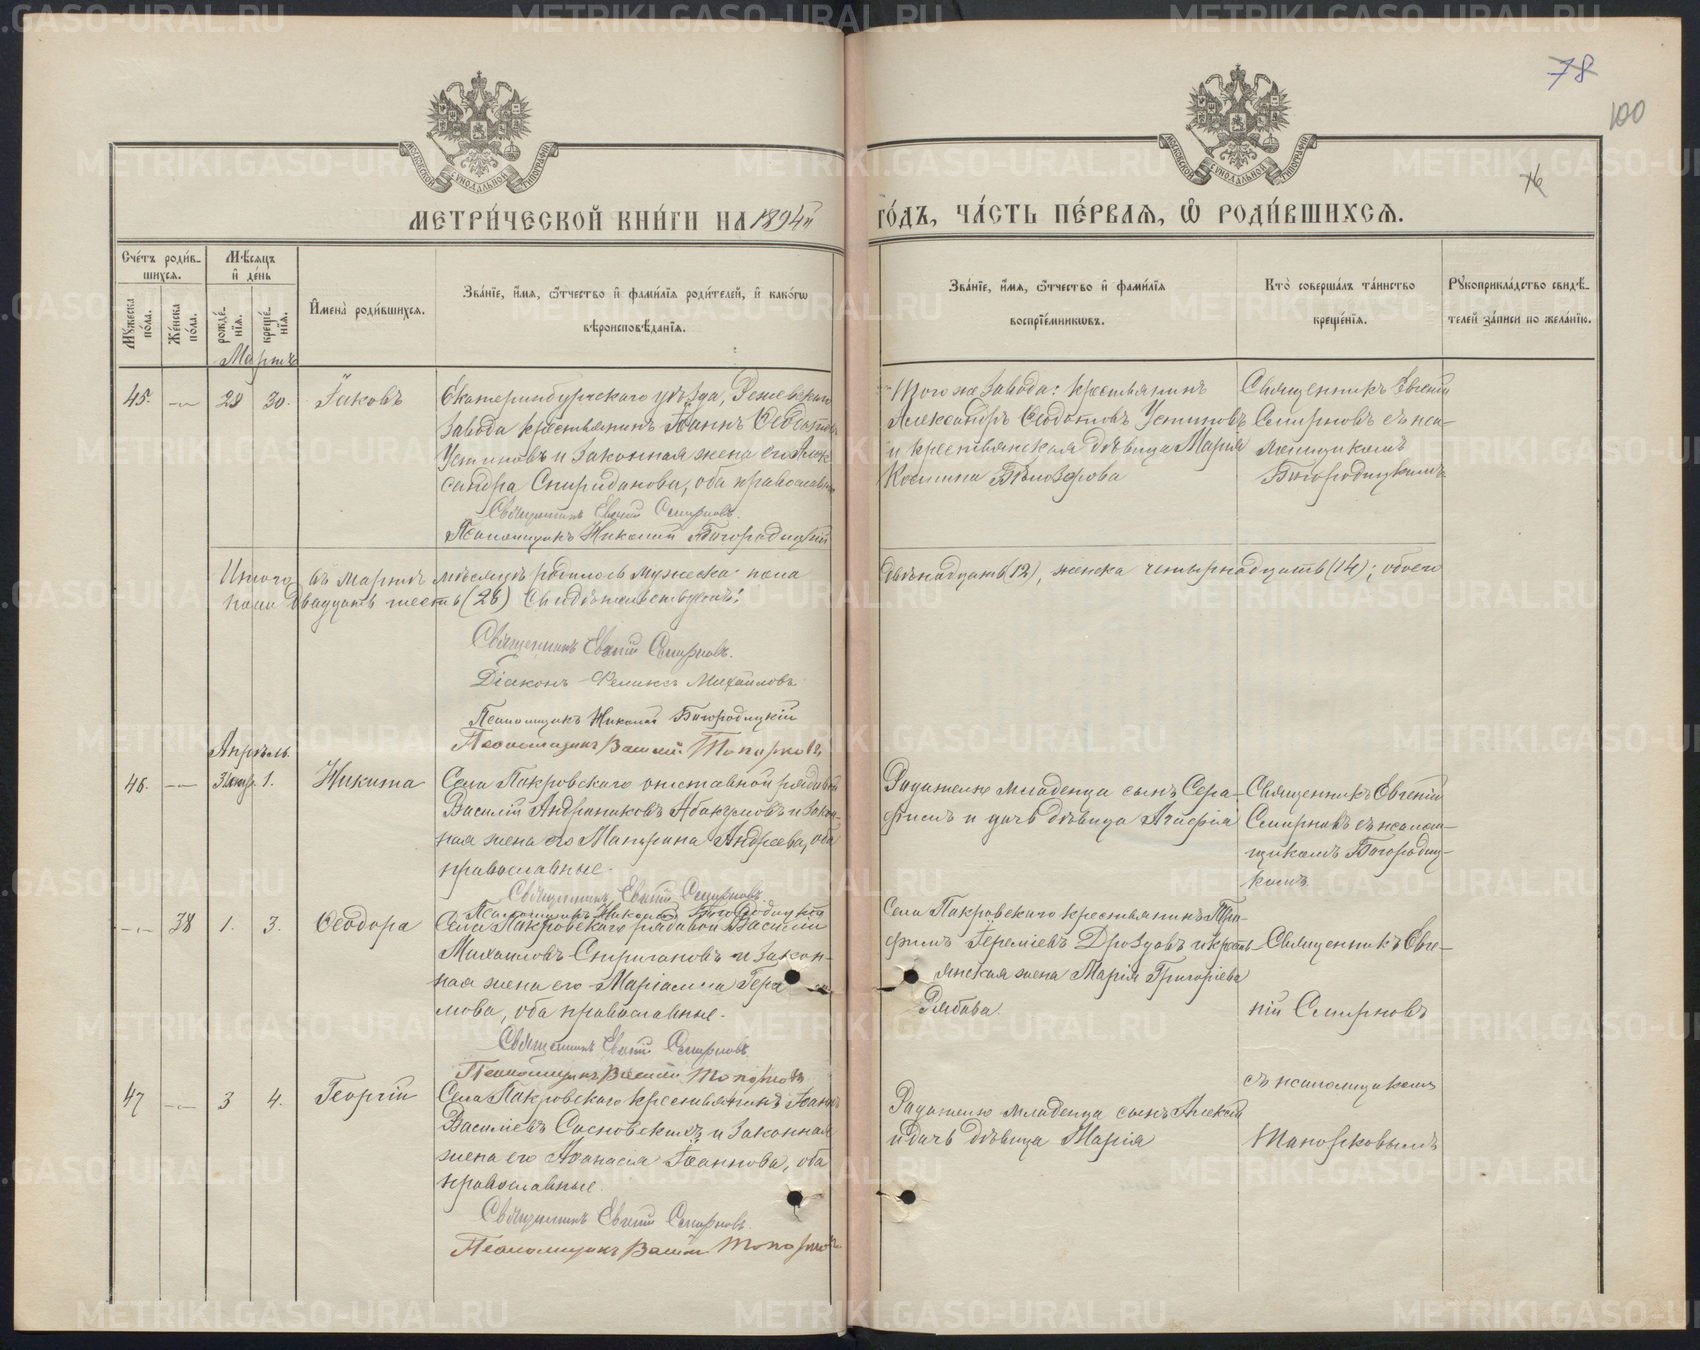 78
100
76
МОСКОВСКОЙ СѴНОДАЛЬНОЙ ТИПОГРАФІИ
МОСКОВСКОЙ СѴНОДАЛЬНОЙ ТИПОГРАФІИ
МЕТРИ́ЧЕСКОЙ КНИ́ГИ НА 1894й
ГО́ДЪ, ЧА́СТЬ ПЕ́РВАѦ, Ѡ҆ РОДИ́ВШИХСѦ.
Сче́тъ роди́в-
шихся.
Мѣ́сяцъ
и҆ де́нь
Мꙋ́жеска
по́ла.
Же́нска
по́ла.
рожде́-
нїя.
креще́-
нїя.
И҆мена̀ роди́вшихся.
Зва́нїе, и҆́мя, ѻ҆́тчество и҆ фами́лїя роди́телей, и҆ како́гѡ
вѣроисповѣ́данїя.
Зва́нїе, и҆́мя, ѻ҆́тчество и҆ фами́лїя
воспрїе́мникѡвъ.
Кто̀ соверша́лъ та́инство
креще́нїя.
Рꙋкоприкла́дство свидѣ́-
телей за́писи по жела́нїю.
Мартъ
45. 29 30. Іаковъ
Екатеринбургскаго уѣзда, Режевскаго
завода крестьянинъ Іоаннъ Ѳеодотовъ
Устиновъ и законная жена его Алек
сандра Спиридонова, оба православные
Священникъ Евгеній Смирновъ.
Псаломщикъ Николай Богородицкій
Того же завода: крестьянинъ
Александръ Ѳеодотовъ Устиновъ
и крестьянская дѣвица Марія
Косьмина Бѣлозерова
Священникъ Евгеній
Смирновъ съ пса-
ломщикомъ
Богородицкимъ
Итого въ Мартѣ мѣсяцѣ родилось мужеска пола
двѣнадцать (12), женска четырнадцать (14); обоего
пола двадцать шесть (26) Свидѣтельствуютъ:
Священникъ Евгеній Смирновъ.
Діаконъ Феликсъ Михайловъ
Псаломщикъ Николай Богородицкій
Псаломщикъ Василій Топорковъ
Апрѣль
46. 31 мар. 1. Никита
Села Покровскаго отставной рядовой
Василій Андрониковъ Абакумовъ и закон-
ная жена его Матрона Андреева, оба
православные.
Священникъ Евгеній Смирновъ.
Псаломщикъ Николай Богородицкій
Родителю младенца сынъ Сера-
фимъ и дочь дѣвица Агафія
Священникъ Евгеній
Смирновъ съ псалом-
щикомъ Богородиц-
кимъ.
38 1. 3. Ѳеодора
Села Покровскаго рядовой Василій
Михаиловъ и закон-
ная жена его Маріамна Гера
мова, оба православные.
Священникъ Евгеній Смирновъ
Псаломщикъ Василій Топорковъ
Села Покровскаго крестьянинъ Тро-
фимъ Іереміевъ Дроздовъ и кресть-
янская жена Марія Григоріева
Рябова.
Священникъ Евге-
ній Смирновъ
съ псаломщикомъ
Топорковымъ
47 3 4. Георгій
Села Покровскаго крестьянинъ Іоаннъ
Василіевъ Сосновскихъ и законная
жена его Аѳанасія Іоаннова, оба
православные.
Священникъ Евгеній Смирновъ
Псаломщикъ Василій Топорковъ
Родителю младенца сынъ Алексѣй
и дочь дѣвица Марія
METRIKI.GASO-URAL.RU